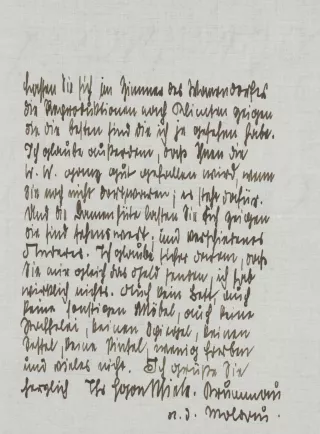 lassen Sie sich im Zimmer des Warendorfer
die Reproduktionen nach Klimten zeigen
die die besten sind die ich je gesehen habe.
Ich glaube außerdem, dass Ihnen die
W. W. ganz gut gefallen wird, wenn
Sie noch nicht dort waren; es steht dafür.
Und die Damenhüte lassen Sie sich zeigen
die sind sehenswert, und verschiedenes
Anderes. Ich glaube sicher daran, dass
Sie mir gleich das Geld senden, ich hab
wirklich nichts. Auch kein Bett, auch
keine sonstigen Möbel, auch keine
Staffelei, keinen Spiegel, keinen
Sessel, keine Pinsel, wenig Farben
und vieles nicht. Ich grüße Sie
herzlich Ihr Egon Schiele. Krummau
a. d. Moldau.